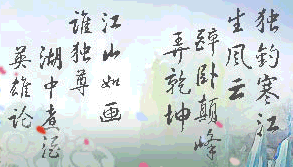 独钓寒江
生风云
醉卧颠峰
弄乾坤
江山如画
谁独尊
湖中煮酒
英雄论